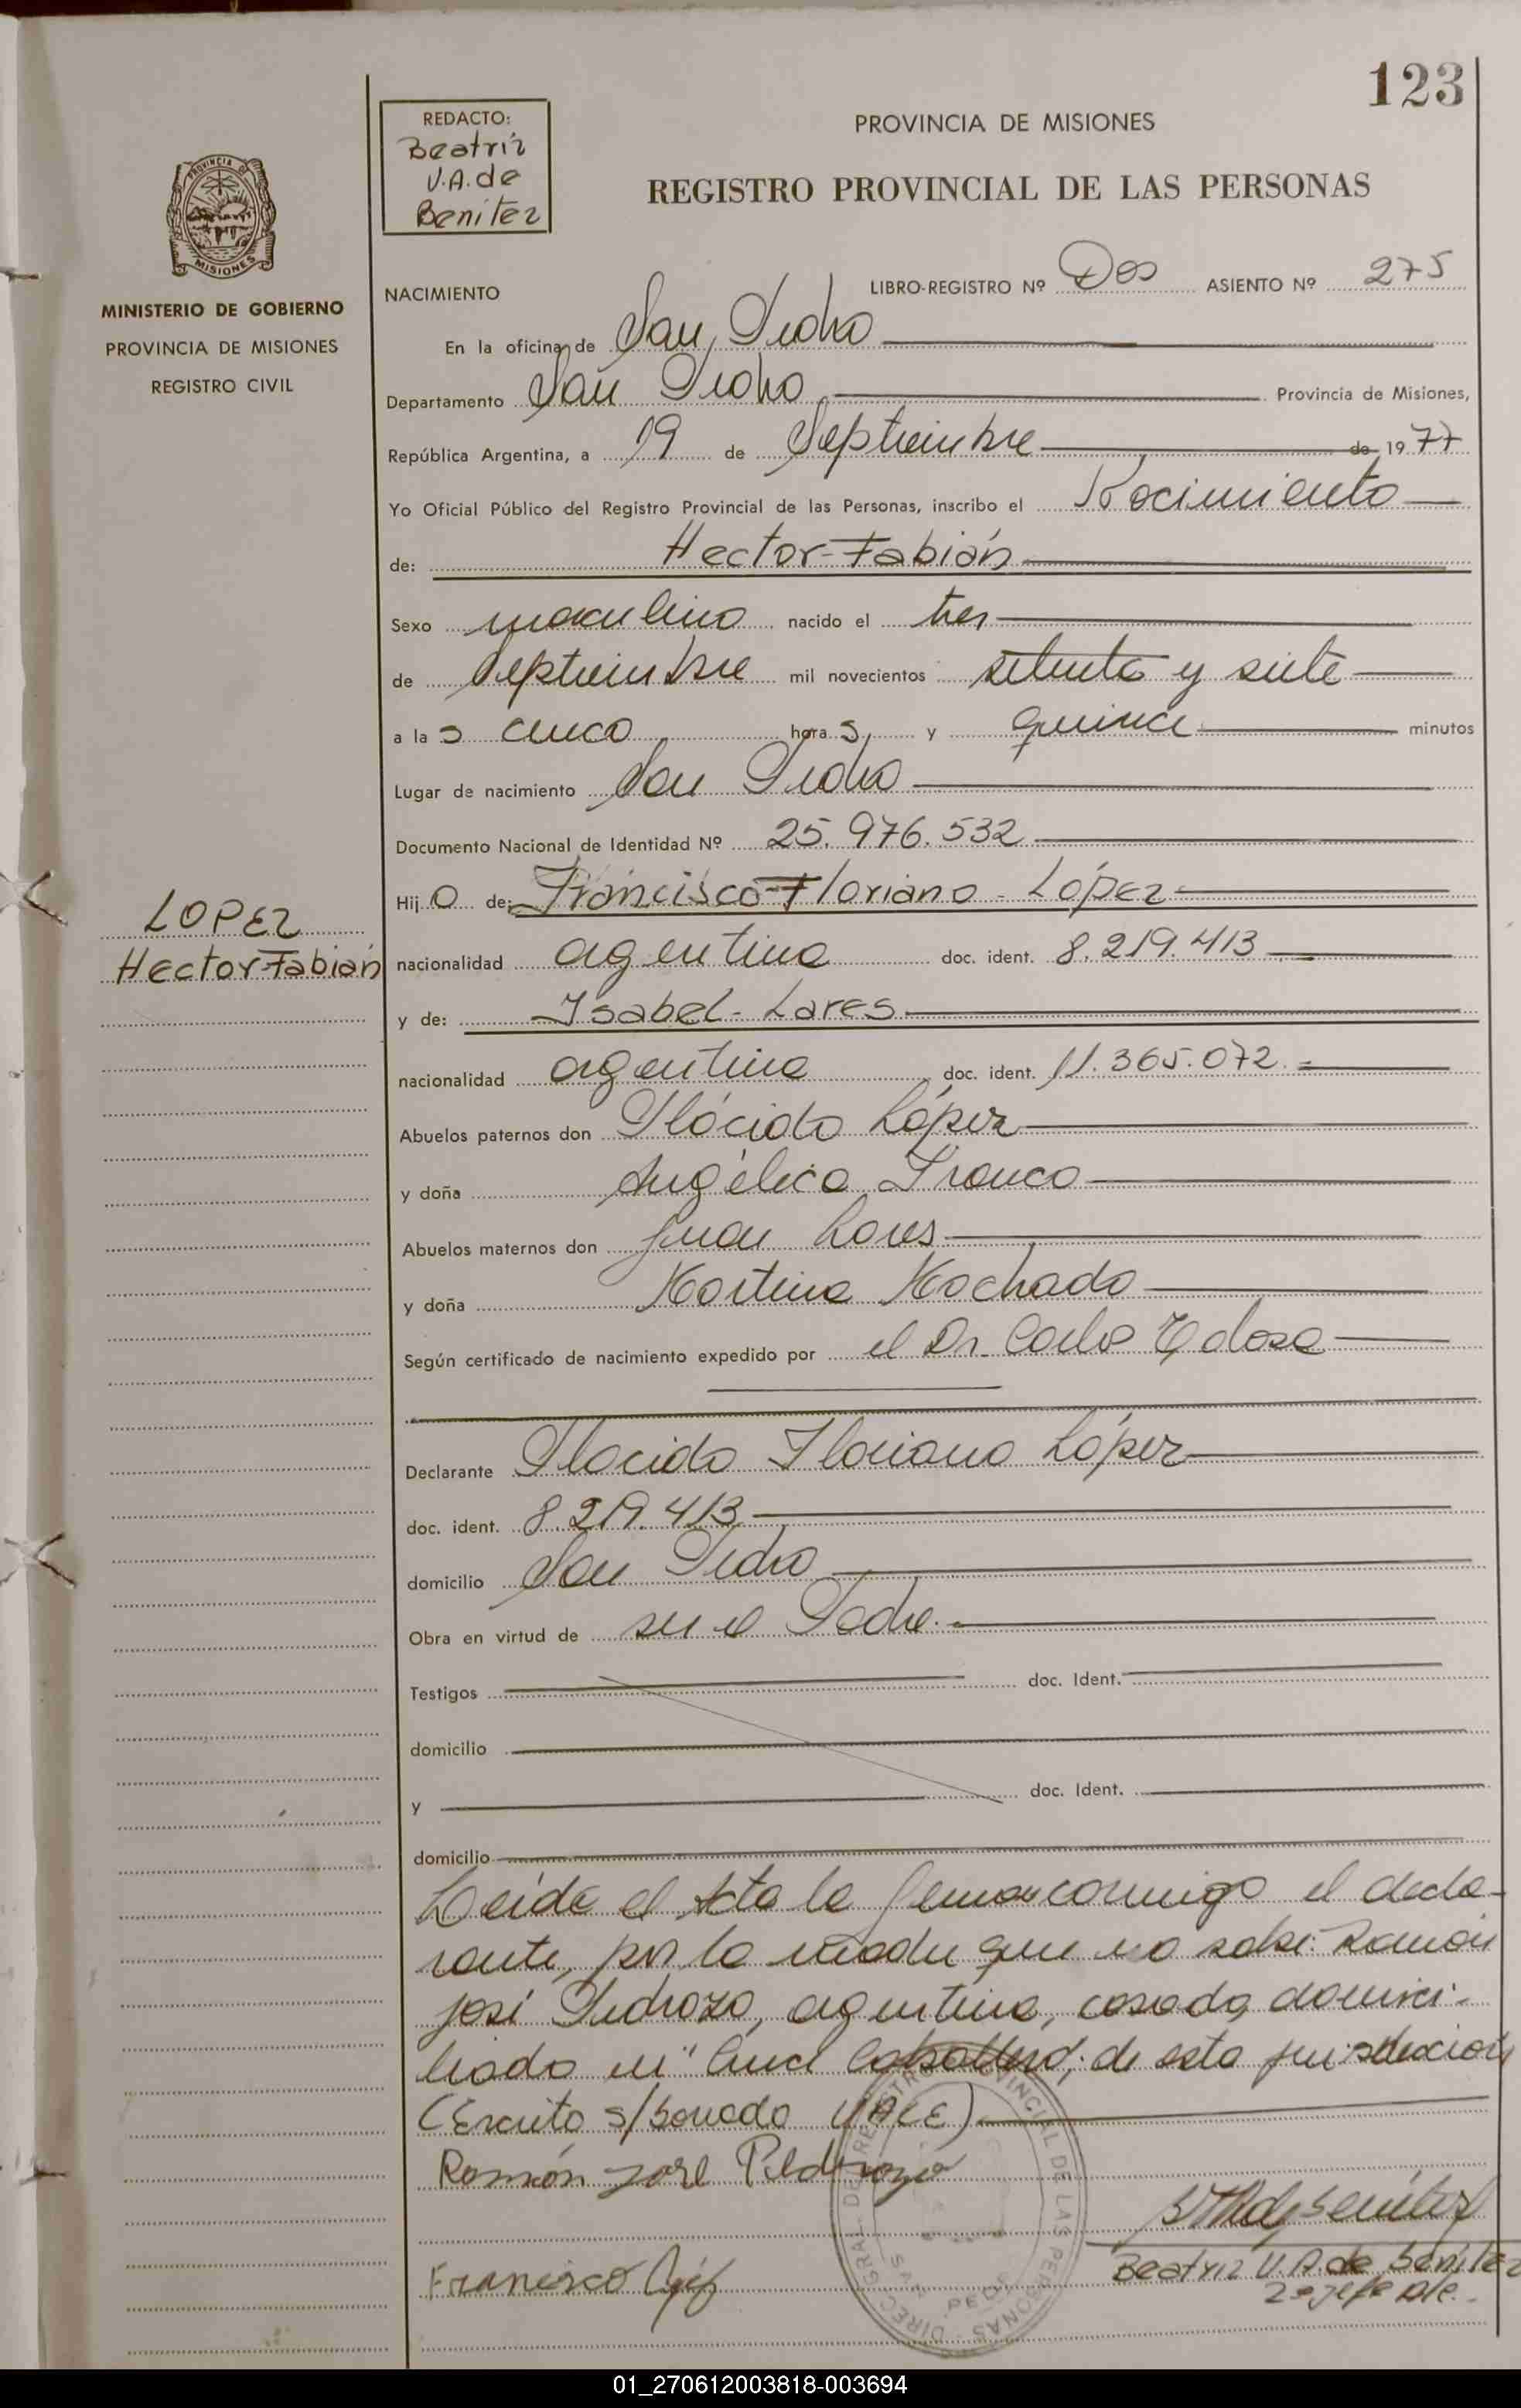 123
REDACTO:
Beatriz
V.A. de
Benitez
PROVINCIA DE MISIONES
REGISTRO PROVINCIAL DE LAS PERSONAS
PROVINCIA DE
MISIONES
MINISTERIO DE GOBIERNO
PROVINCIA DE MISIONES
REGISTRO CIVIL
NACIMIENTO
LIBRO-REGISTRO Nº Dos ASIENTO Nº 275
En la oficina de San Pedro
Departamento San Pedro Provincia de Misiones,
República Argentina, a 19 de Septiembre de 1977
Yo Oficial Público del Registro Provincial de las Personas, inscribo el Nacimiento
de: Hector-Fabián
Sexo masculino nacido el tres
de Septiembre mil novecientos setenta y siete
a las cinco horas y quince minutos
Lugar de nacimiento San Pedro
Documento Nacional de Identidad Nº 25.976.532
Hijo de: Francisco-Floriano-López
LOPEZ
Hector-Fabián
nacionalidad argentina doc. ident. 8.219.413
y de: Isabel-Lares
nacionalidad argentina doc. ident. 11.365.072
Abuelos paternos don Plácido López
y doña Angélica Franco
Abuelos maternos don Juan Lares
y doña Martina Machado
Según certificado de nacimiento expedido por el Dr. Carlos
Declarante Placido Floriano López
doc. ident. 8.219.413
domicilio San Pedro
Obra en virtud de ser el Padre.
Testigos doc. Ident.
domicilio
y doc. Ident.
domicilio
Leída el Acta la firman conmigo el decla-
rante, por la madre que no sabe: Ramón
José Pedrozo, argentino, casado, domici-
liado en Cruce Caballero, de esta jurisdicción
(Escrito s/borrado VALE)
Ramón José Pedrozo
Beatriz V.A. de Benitez
2º Jefe
Francisco
DIREC. GRAL. DE REGISTRO PROVINCIAL DE LAS PERSONAS
SAN PEDRO
01_270612003818-003694